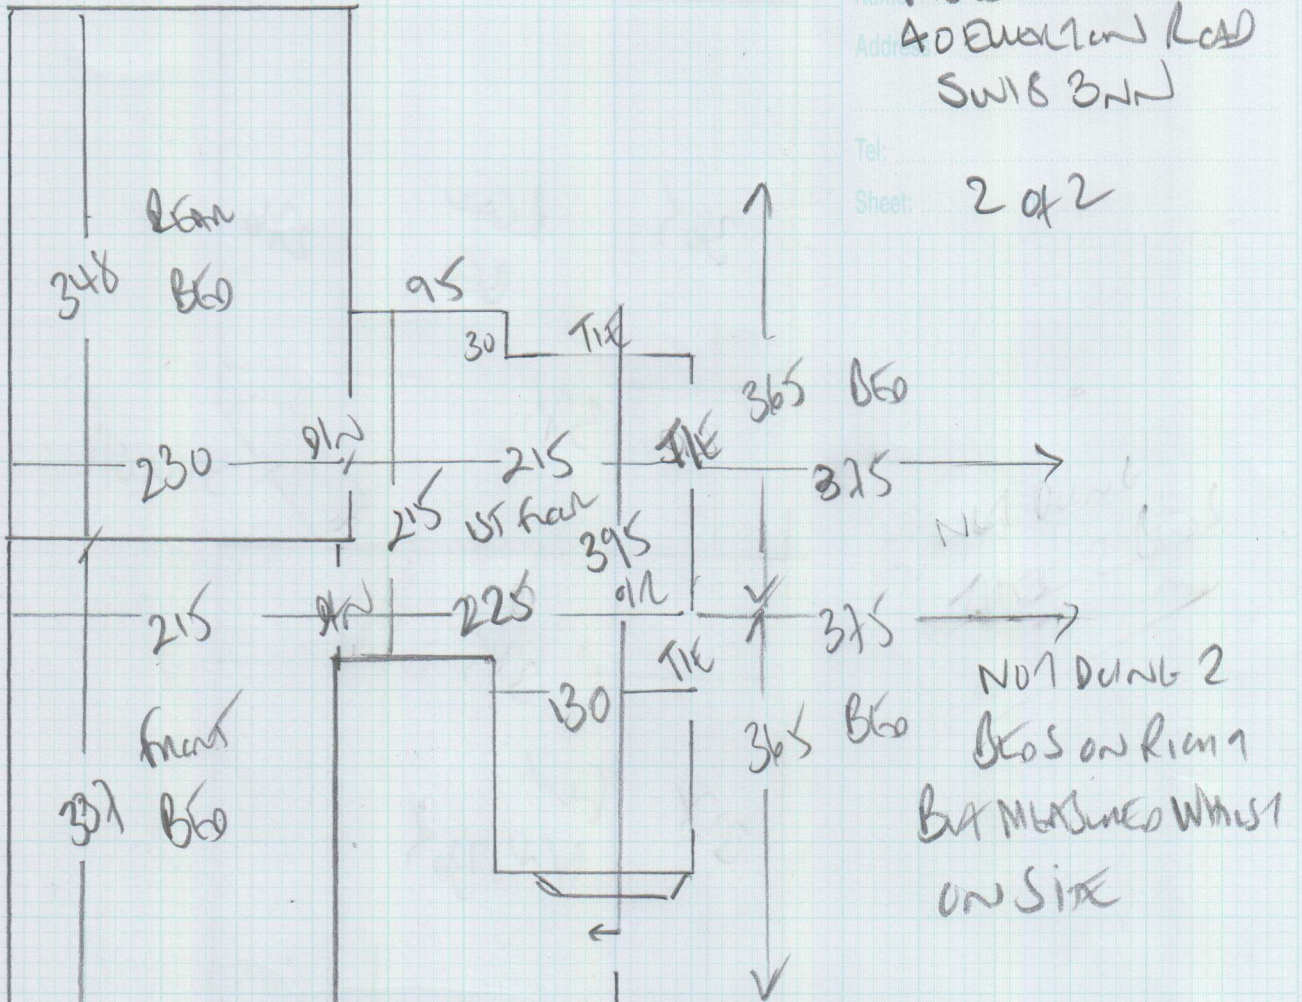 Address:
ROAD
SW18 3NN
Tel:
Sheet: 2 of 2
REAR
BED
348
95
30
TIE
365 BED
D/N
230
215
TIE
375
215
1ST FLOOR
395
215
D/N
225
D/R
375
TIE
130
FRONT
BED
337
365 BED
NOT DOING 2
BEDS ON RIGHT
BUT MEASURED WHILST
ON SITE